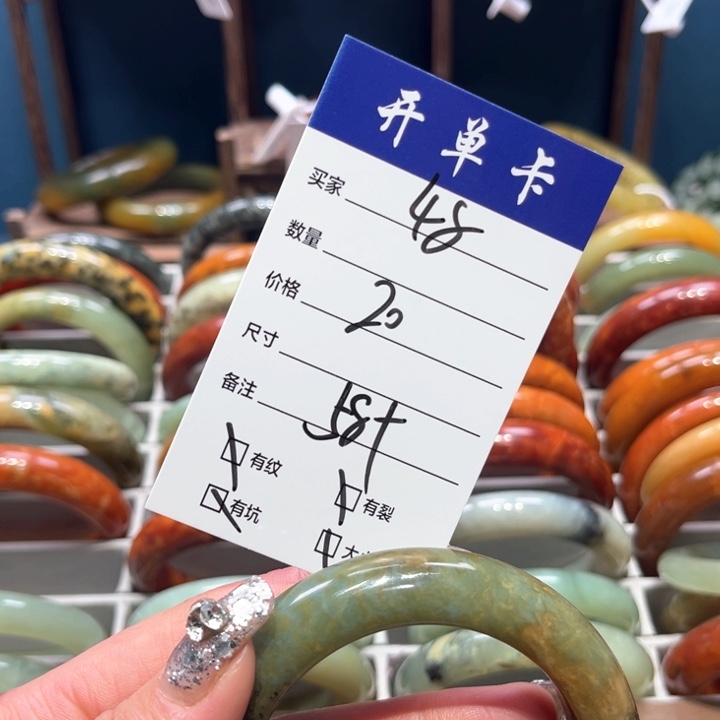 开单卡
买家 48
数量
价格 20
尺寸
备注
有纹 有裂
有坑 大